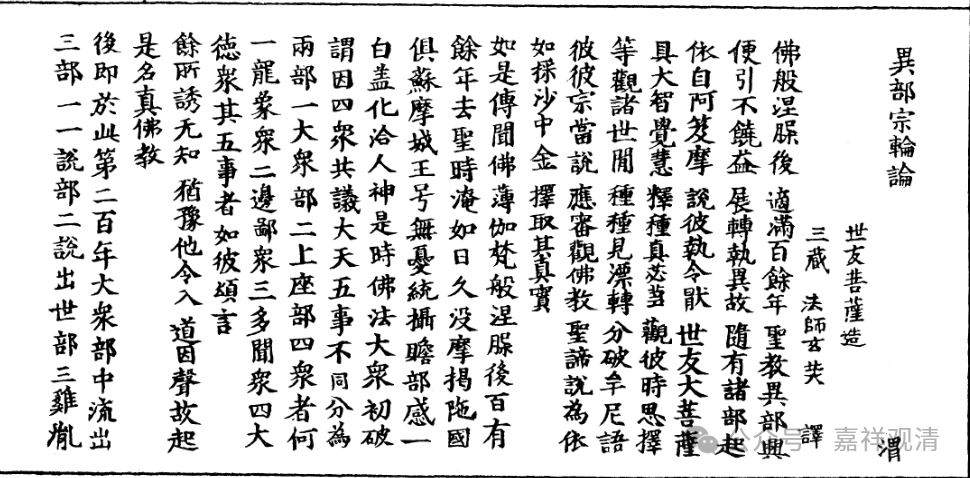 異部宗輪論 渭
世友菩薩造
三藏 法師玄奘 譯
佛般涅槃後 適滿百餘年 聖教異部興
便引不饒益 展轉執異故 隨有諸部起
依自阿笈摩 說彼執令猒 世友大菩薩
具大智覺慧 釋種真苾芻 觀彼時思擇
等觀諸世間 種種見漂轉 分破牟尼語
彼彼宗當說 應審觀佛教 聖諦說為依
如採沙中金 擇取其真實
如是傳聞佛薄伽梵般涅槃後百有
餘年去聖時淹如日久没摩揭陁國
俱蘇摩城王号無憂統攝贍部感一
白盖化洽人神是時佛法大衆初破
謂因四衆共議大天五事不同分為
兩部一大衆部二上座部四衆者何
一龍象衆二邊鄙衆三多聞衆四大
徳衆其五事者如彼頌言
餘所誘无知 猶豫他令入 道因聲故起
是名真佛教
後即於此第二百年大衆部中流出
三部一一說部二說出世部三雞胤
公众号 · 嘉祥观清